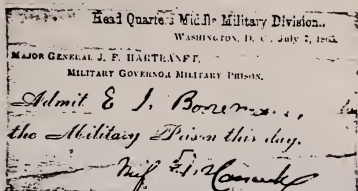 Head Quarters Middle Military Division.,
WASHINGTON, D. C. July 7, 1865.
MAJOR GENERAL J. F. HARTRANFT,
MILITARY GOVERNOR MILITARY PRISON.
Admit E J.
the Military Prison this day.
Hancock